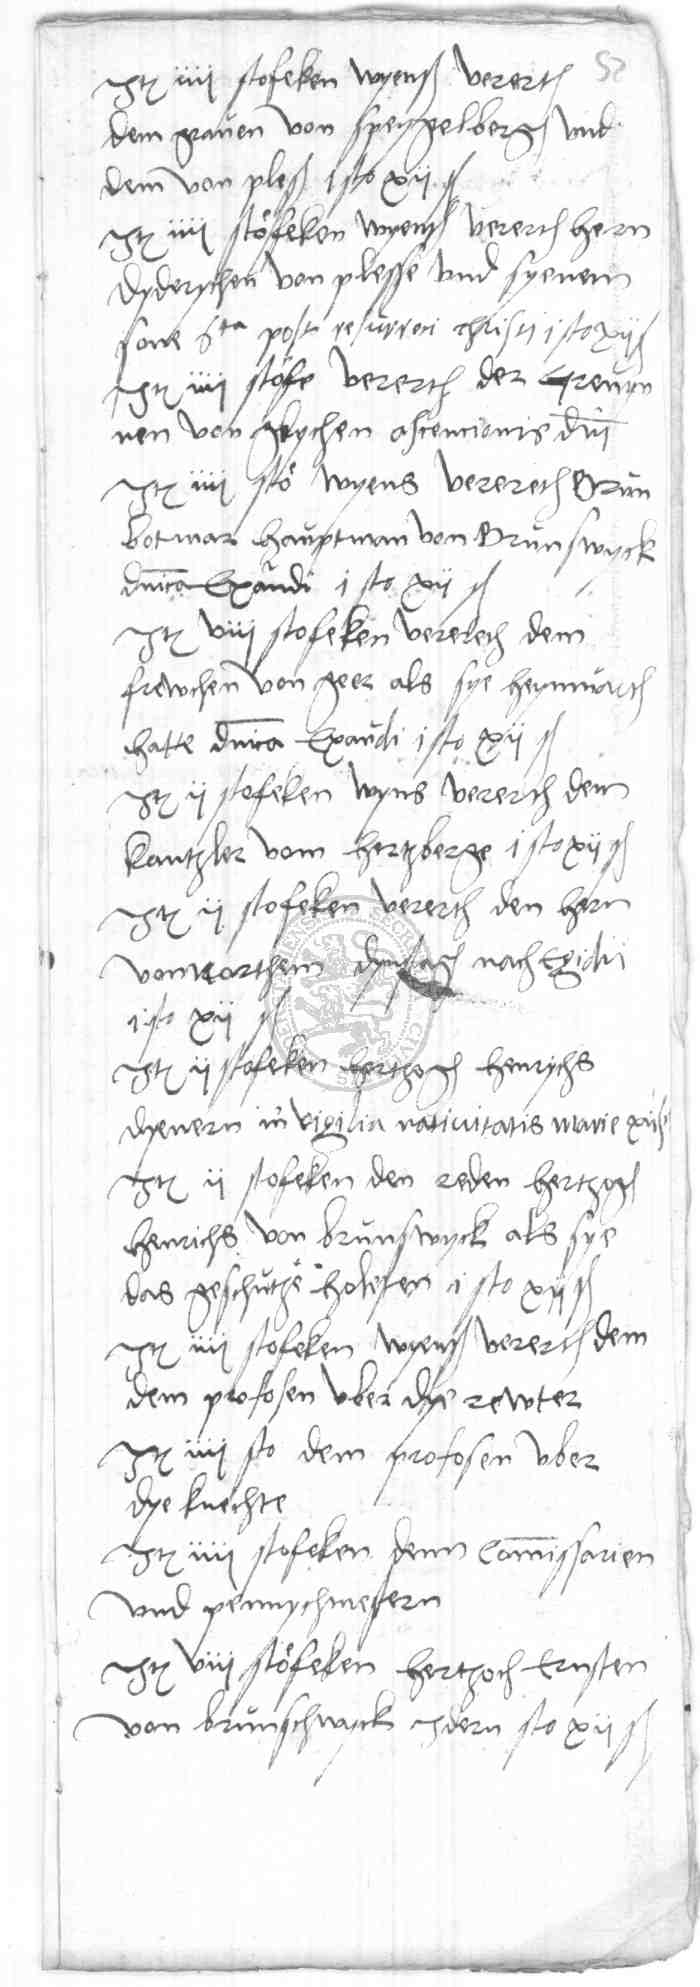 52
Itz iiii stofeken wyens vererth
dem graven von speygelbergh und
dem von pless i sto xii ß
Itz iiii stöfeken wyens vererth hern
dyderychen von plesse und syenem
sone 6ta post resurreci christi i sto xii ß
Itz iiii stöfe vererth der Grevyn
nen von glychen ascencionis dni
Itz iiii stö wyens verereth Brun
botmar hauptman von Brunswyck
dnica Exaudi i sto xii ß
Itz viii stofeken verereth dem
frewchen von geer als sye heymvarth
hatte dnica Exaudi i sto xii ß
Itz ii stofeken wyns vererth dem
kantzler vom hertzberge i sto xii ß
Itz ii stofeken vererth den hern
von northem dynstag nach Egidii
i sto xii ß
Itz ii stofeken herthogh henrychs
dyenern in vigilia nativitatis marie xii ß
Itz ii stofeken den reden herthogh
henrichs von brunswyck als sye
das geschutze holeten i sto xii ß
Itz iiii stofeken wyens vererth dem
dem profosen uber dye rewter
Itz iiii sto dem profosen uber
dye knechte
Itz iiii stofeken denn Commissarien
und pennychmestern
Itz viii stöfeken herthoch Ernsten
von brunschwyck idern sto xii ß